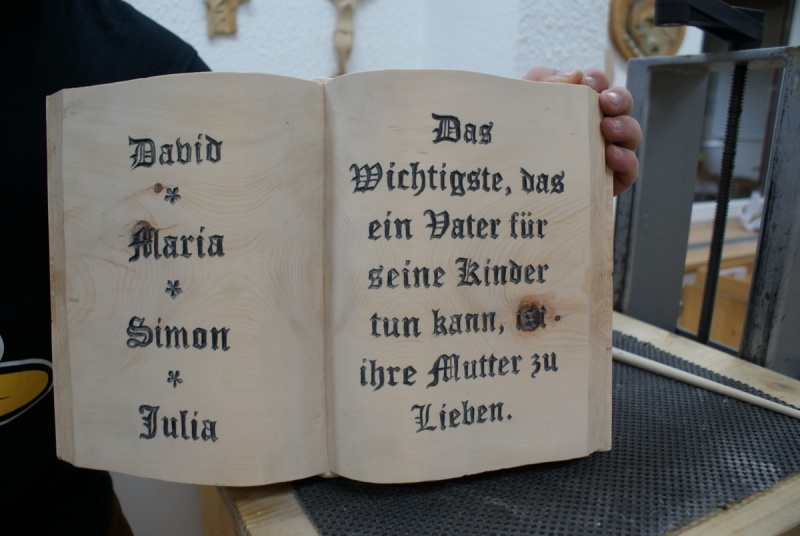 David
*
Maria
*
Simon
*
Julia
Das
Wichtigste, das
ein Vater für
seine Kinder
tun kann, ist
ihre Mutter zu
Lieben.